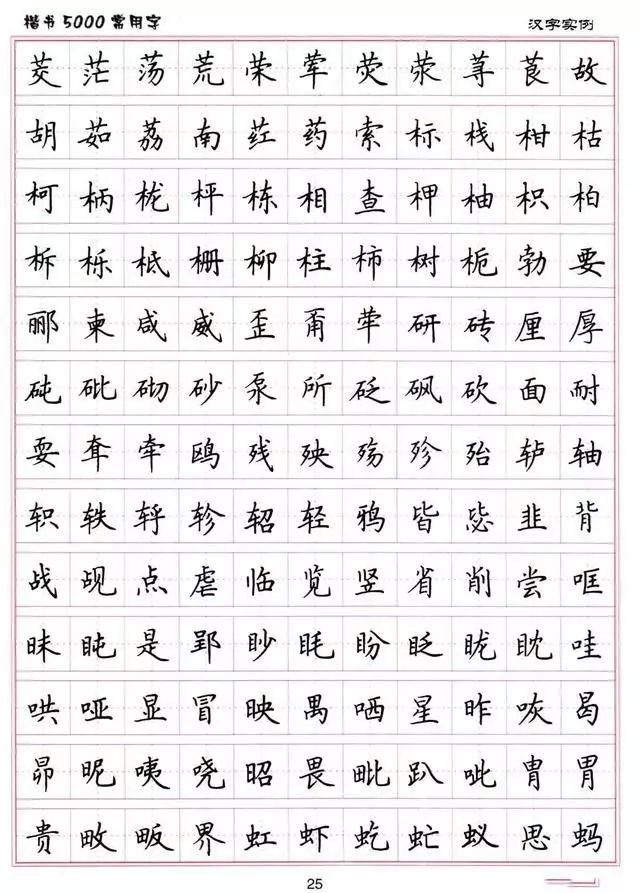 楷书5000常用字 汉字实例
茭 茫 荡 荒 荣 荤 荧 荥 荨 茛 故
胡 茹 荔 南 荭 药 索 标 栈 柑 枯
柯 柄 栊 枰 栋 相 查 柙 柚 枳 柏
柝 栎 柢 栅 柳 柱 柿 树 栀 勃 要
郦 柬 咸 威 歪 甭 荦 研 砖 厘 厚
砘 砒 砌 砂 泵 所 砭 砜 砍 面 耐
耍 耷 牵 鸥 残 殃 殇 殄 殆 轳 轴
轵 轶 轷 轸 轺 轻 鸦 皆 毖 韭 背
战 觇 点 虐 临 览 竖 省 削 尝 哐
昧 盹 是 郢 眇 眊 盼 眨 昽 眈 哇
哄 哑 显 冒 映 禺 哂 星 昨 咴 曷
昴 昵 咦 哓 昭 畏 毗 趴 呲 胄 胃
贵 畋 畈 界 虹 虾 虼 虻 蚁 思 蚂
25